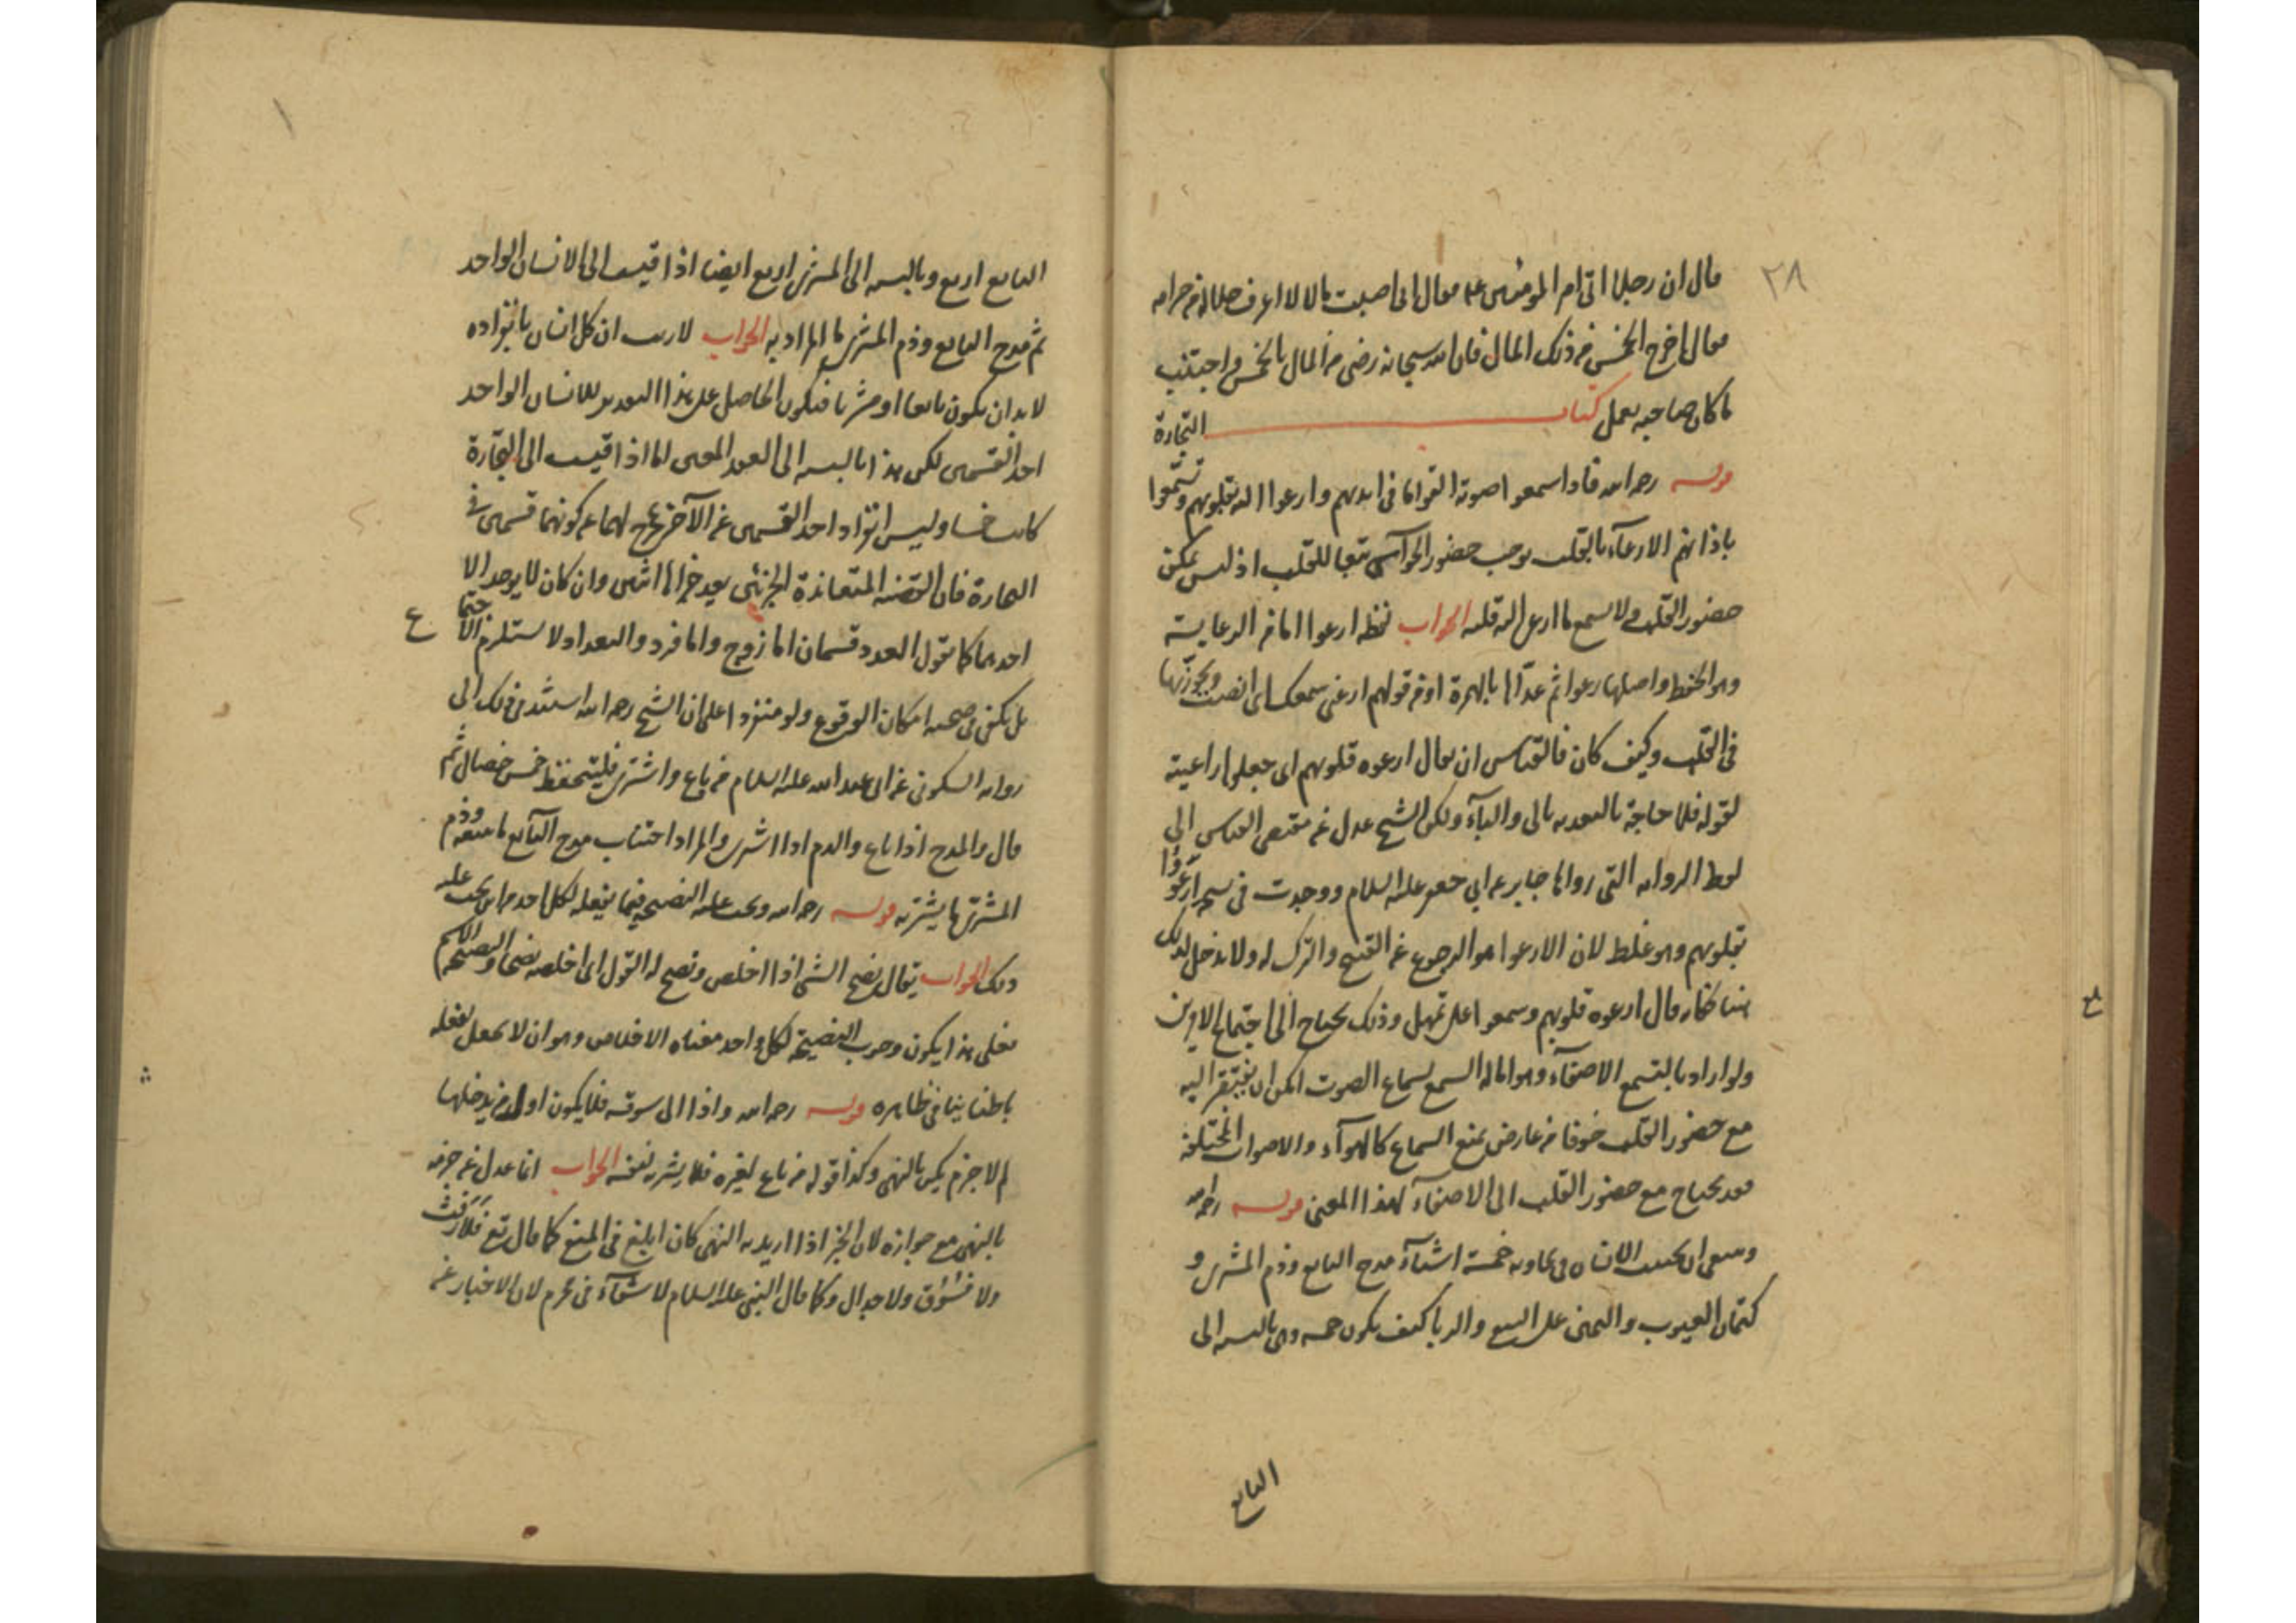 ٢٨
قال ان رجلا اتى امير المومنين عليه فقال انى اصبت مالا لا اعرف حلاله من حرامه
فقال اخرج الخمس من ذلك المال فان الله سبحانه رضى من المال بالخمس واجتنب
ما كان صاحبه يعمل كتاب التجارة
قوله رحمه الله فاذا سمعوا صوته القوا ما فى ايديهم وارعوا اليه بقلوبهم وتسمّعوا
باذانهم الارعآء بالقلب يوجب حضور الحوآس تبعا للقلب اذ ليس يمكن
حضور القلب ولا يسمع ما ارعى اليه قلبه الجواب لفظه ارعوا اما من الرعاية
وهو الحفظ واصلها رعوا ثم عدّاها بالهمزة او من قولهم ارعنى سمعك اى انصت ويجوز
فى القلب وكيف كان فالقياس ان يقال ارعوه قلوبهم اى جعلوها راعية
لقوله فلا حاجة بالتعدية بالى والبآء ولكن الشيخ عدل عن مقتضى القياس الى
لفظ الرواية التى رواها جابر عن ابى جعفر عليه السلام ووجدت فى نسخ ارعَوُا
بقلوبهم وهو غلط لان الارعوا هو الرجوع عن القبيح والترك له ولا مدخل لذلك
هنا فكانه قال ارعوه قلوبهم وسمعوا على تمهل وذلك يحتاج الى اجتماع الامرين
ولو اراد بالتسمع الاصغآء وهو امالة السمع لسماع الصوت امكن ان يفتقر اليه
مع حضور القلب خوفا من عارض يمنع السماع كالهوآء والاصوات المختلفة
فقد يحتاج مع حضور القلب الى الاصغآء لهذا المعنى قوله رحمه الله
وينبغى ان يجتنب الانسان فى تجارته خمسة اشيآء مدح البايع وذم المشترى و
كتمان العيوب واليمين على البيع والربا كيف يكون خمسة وهى بالنسبة الى
البايع
البايع اربع وبالنسبة الى المشترى اربع ايضا اذا قيست الى الانسان الواحد
ثم مدح البايع وذم المشترى ما المراد به الجواب لا ريب ان كل انسان بانفراده
لا بد ان يكون بايعا او مشتريا فيكون الحاصل على هذا التقدير للانسان الواحد
احد القسمين لكن هذا بالنسبة الى العقد المعين اما اذا قيست الى التجارة
كانت خمسا وليس انفراد احد القسمين عن الآخر مخرج لهما عن كونهما قسمين فى
التجارة فان القضية المتعاندة الجزئين يعد جزاها اثنين وان كان لا يوجد الا
احدهما كما تقول العدد قسمان اما زوج واما فرد والتعداد لا يستلزم الاجتماع
بل يكفى فى صحته امكان الوقوع ولو منفردا على ان الشيخ رحمه الله استند فى ذلك الى
رواية السكونى عن ابى عبد الله عليه السلام من باع واشترى فليتحفظ خمس خصال ثم
قال والمدح اذا باع والذم اذا اشترى والمراد اجتناب مدح البآيع ما يبيعه وذم
المشترى ما يشتريه قوله رحمه الله ويجب عليه النصيحة فيما يفعله لكل احد من اين يجب عليه
ذلك الجواب يقال نصح الشئ اذا اخلص ونصح له القول اى اخلصه نصحا والاسم النصيحة
فعلى هذا يكون وجوب النصيحة لكل واحد معناه الاخلاص وهو ان لا يجعل لفعله
باطنا ينافى ظاهره قوله رحمه الله واذا اتى سوقه فلا يكون اول من يدخلها
لم لا جزم يكن بالنهى وكذا قوله من باع لغيره فلا يشتريه لنفسه الجواب انما عدل عن جزمه
بالنهى مع جوازه لان الخبر اذا اريد به النهى كان ابلغ فى المنع كما قال تع فَلا رَفَثَ
ولا فسوق ولا جدال وكما قال النبى عليه السلام لا شفآء فى محرم لان الاخبار عن